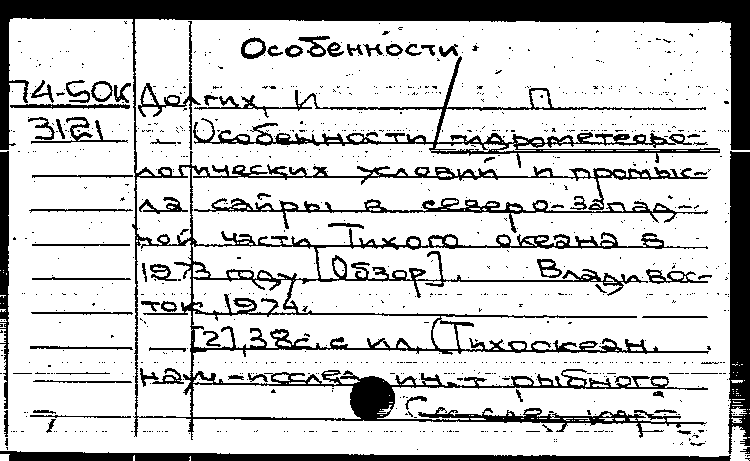 Особенности.
74-50К Долгих, И П
3121 Особенности гидрометеоро-
логических условий и промыс-
ла сайры в северо-запад-
ной части Тихого океана в
1973 году. [Обзор]. Владивос-
ток, 1974.
[2], 38с. с ил. (Тихоокеан.
науч.-исслед. ин-т рыбного
См. след. карт.